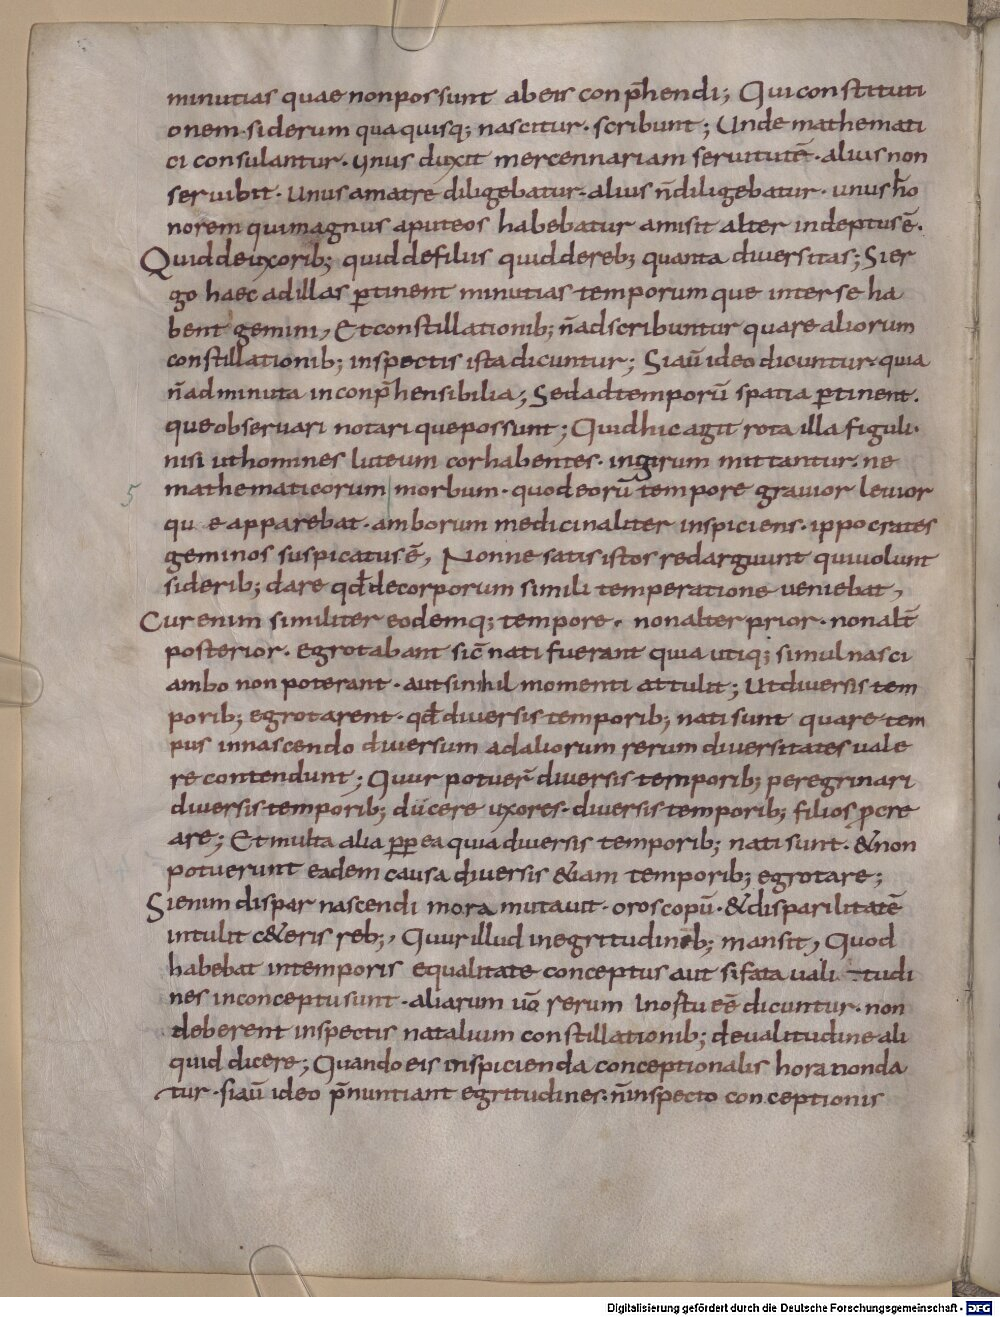 minutias quae non possunt ab eis conp̄hendi; Qui constituti
onem siderum qua quisq; nascitur · scribunt; Unde mathemati
ci consulantur · unus duxit mercennariam seruitutē · alius non
seruibit · Unus amatre diligebatur · alius n̄ diligebatur · unus ho
norem qui magnus aputeos habebatur amisit alter indeptus ē ·
Quid de uxorib; quid de filiis quid de reb; quanta diuersitas; Si er
go haec ad illas ꝑtinent minutias temporum que inter se ha
bent gemini, Et constillationib; n̄ adscribuntur quare aliorum
constillationib; inspectis ista dicuntur; Si aū ideo dicuntur quia
n̄ ad minuta inconp̄hensibilia; Sed ad temporū spatia ꝑtinent ·
que obseruari notari que possunt; Quid hic agit rota illa figuli ·
nisi ut homines luteum cor habentes · in girum mittantur · ne
5 mathematicorum morbum · quod eorū tempore grauior leuior
qu e apparebat · amborum medicinaliter inspiciens · ippocrates
geminos suspicatus ē, Nonne satis istos redarguunt qui uolunt
siderib; dare qđ de corporum simili temperatione ueniebat,
Cur enim similiter eodemq; tempore · non alter prior · non alt̄
posterior · egrotabant sic̄ nati fuerant quia utiq; simul nasci
ambo non poterant · aut si nihil momenti attulit; Ut diuersis tem
porib; egrotarent · qđ diuersis temporib; nati sunt quare tem
pus in nascendo diuersum ad aliorum rerum diuersitates uale
re contendunt; Quur potuer̄ diuersis temporib; peregrinari
diuersis temporib; ducere uxores · diuersis temporib; filios ꝓcre
are; Et multa alia ꝓpea quia diuersis temporib; nati sunt · & non
potuerunt eadem causa diuersis &iam temporib; egrotare;
Si enim dispar nascendi mora mutauit · oroscopū · & disparilitatē
intulit c&eris reb;, Quur illud in egritudinib; mansit, Quod
habebat in temporis equalitate conceptus aut si fata uali tudi
nes in conceptu sunt · aliarum uō rerum In ostu eē dicuntur · non
deberent inspectis natalium constillationib; de ualitudine ali
quid dicere; Quando eis inspicienda conceptionalis hora nonda
tur · si aū ideo p̄nuntiant egritudines · n̄ inspecto conceptionis
Digitalisierung gefördert durch die Deutsche Forschungsgemeinschaft - DFG